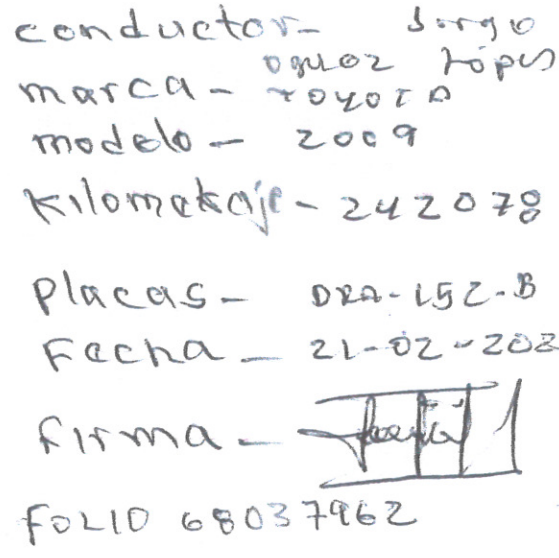 conductor- Jorge
Lópes
marca- TOYOTA
modelo- 2009
Kilometraje- 242078
Placas- DRA-152-B
Fecha- 21-02-202
Firma-
FOLIO 68037962